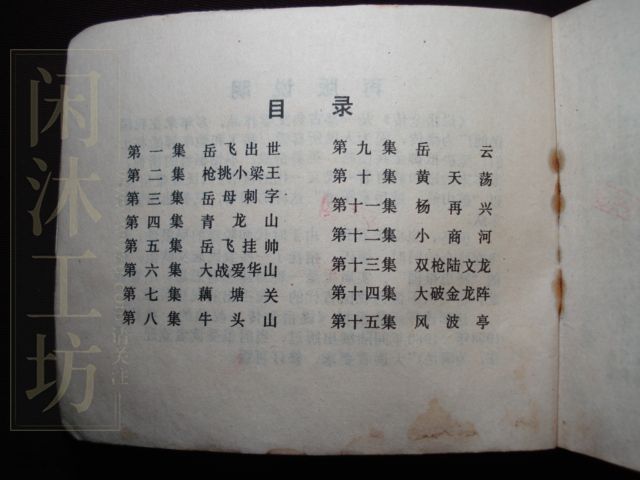 目 录
第一集 岳飞出世
第二集 枪挑小梁王
第三集 岳母刺字
第四集 青龙山
第五集 岳飞挂帅
第六集 大战爱华山
第七集 藕塘关
第八集 牛头山
第九集 岳云
第十集 黄天荡
第十一集 杨再兴
第十二集 小商河
第十三集 双枪陆文龙
第十四集 大破金龙阵
第十五集 风波亭
闲沐工坊
请关注